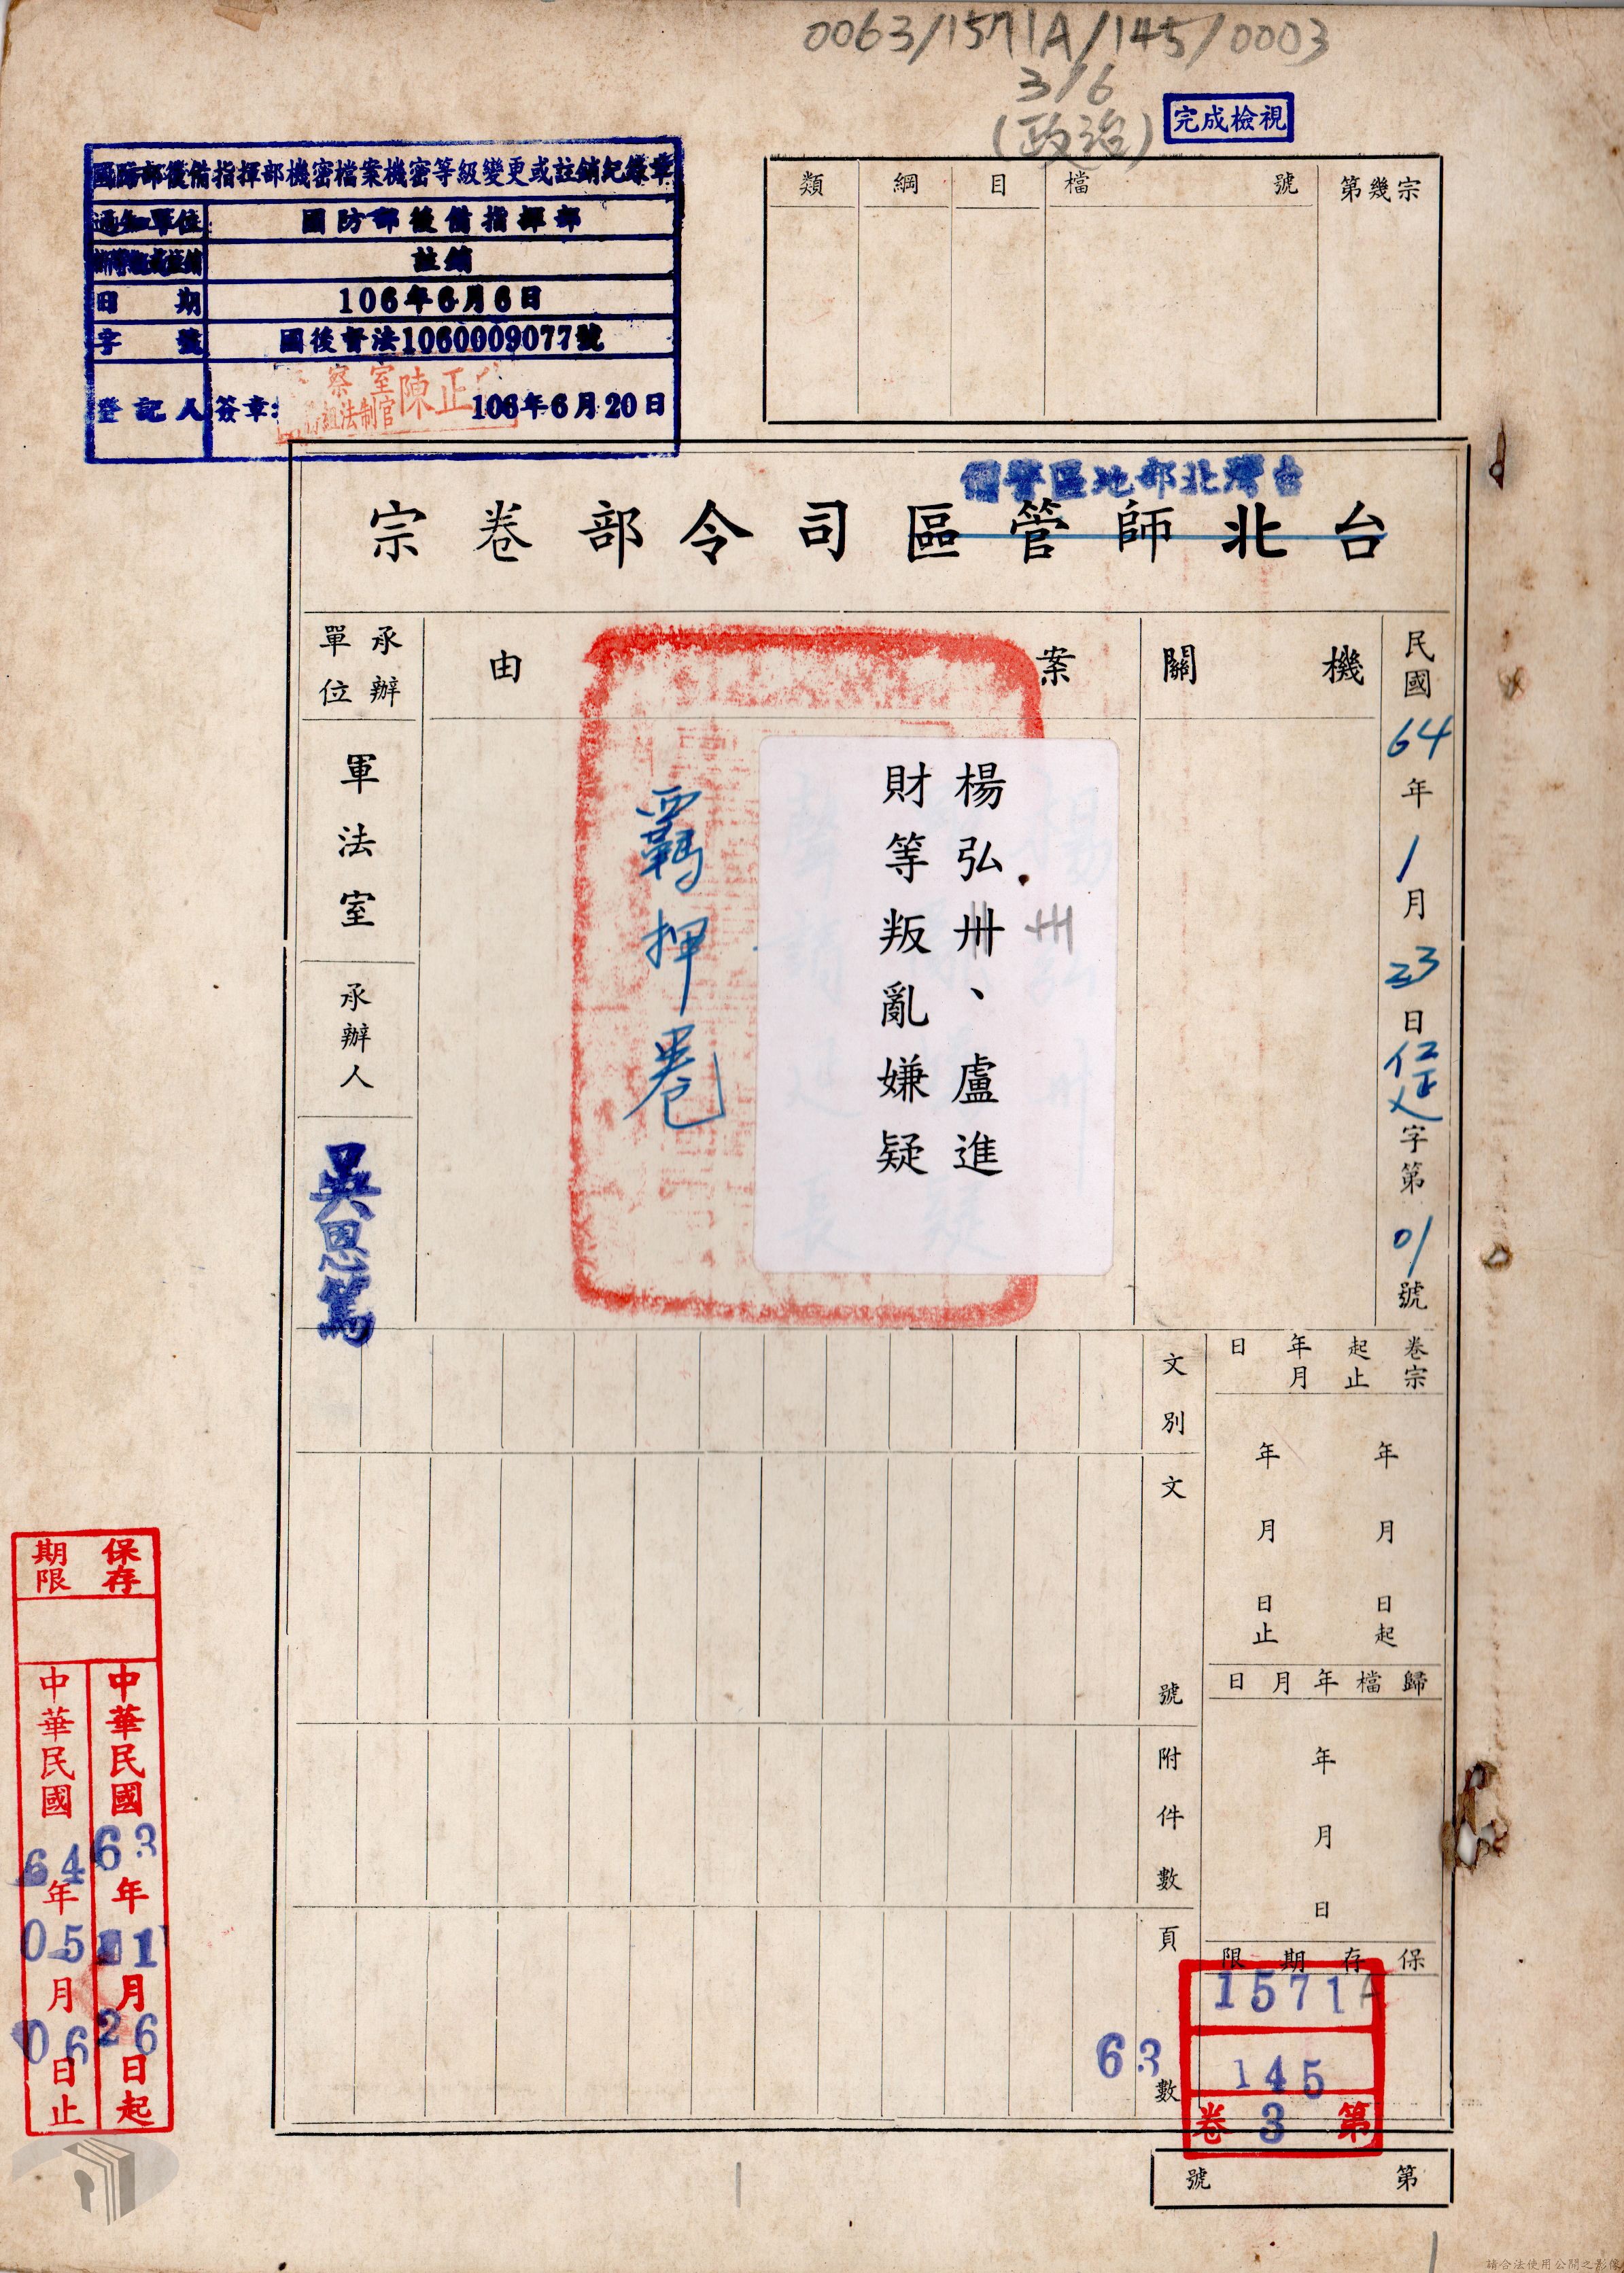 0063/1571A/145/0003
3/6
(政治)
完成檢視
國防部後備指揮部機密檔案機密等級變更或註銷紀錄章
通知單位 國防部後備指揮部
新等級或註銷 註銷
日期 106年6月6日
字號 國後督法1060009077號
登記人 簽章: 106年6月20日
察室
法制官
陳正
類 綱 目 檔號 第幾宗
台灣北部地區警備
台北師管區司令部卷宗
民國64年1月23日
字第01號
機關
案由
楊弘卅、盧進
財等叛亂嫌疑
卅
羈押卷
承辦單位
軍法室
承辦人
吳恩篤
卷宗起止年月日
年月日起
年月日止
歸檔年月日
年月日
保存期限
文別
文號
附件數
頁數
63
1571A
145
第3卷
第號
保存期限
中華民國63年11月26日起
中華民國64年05月06日止
請合法使用公開之影像